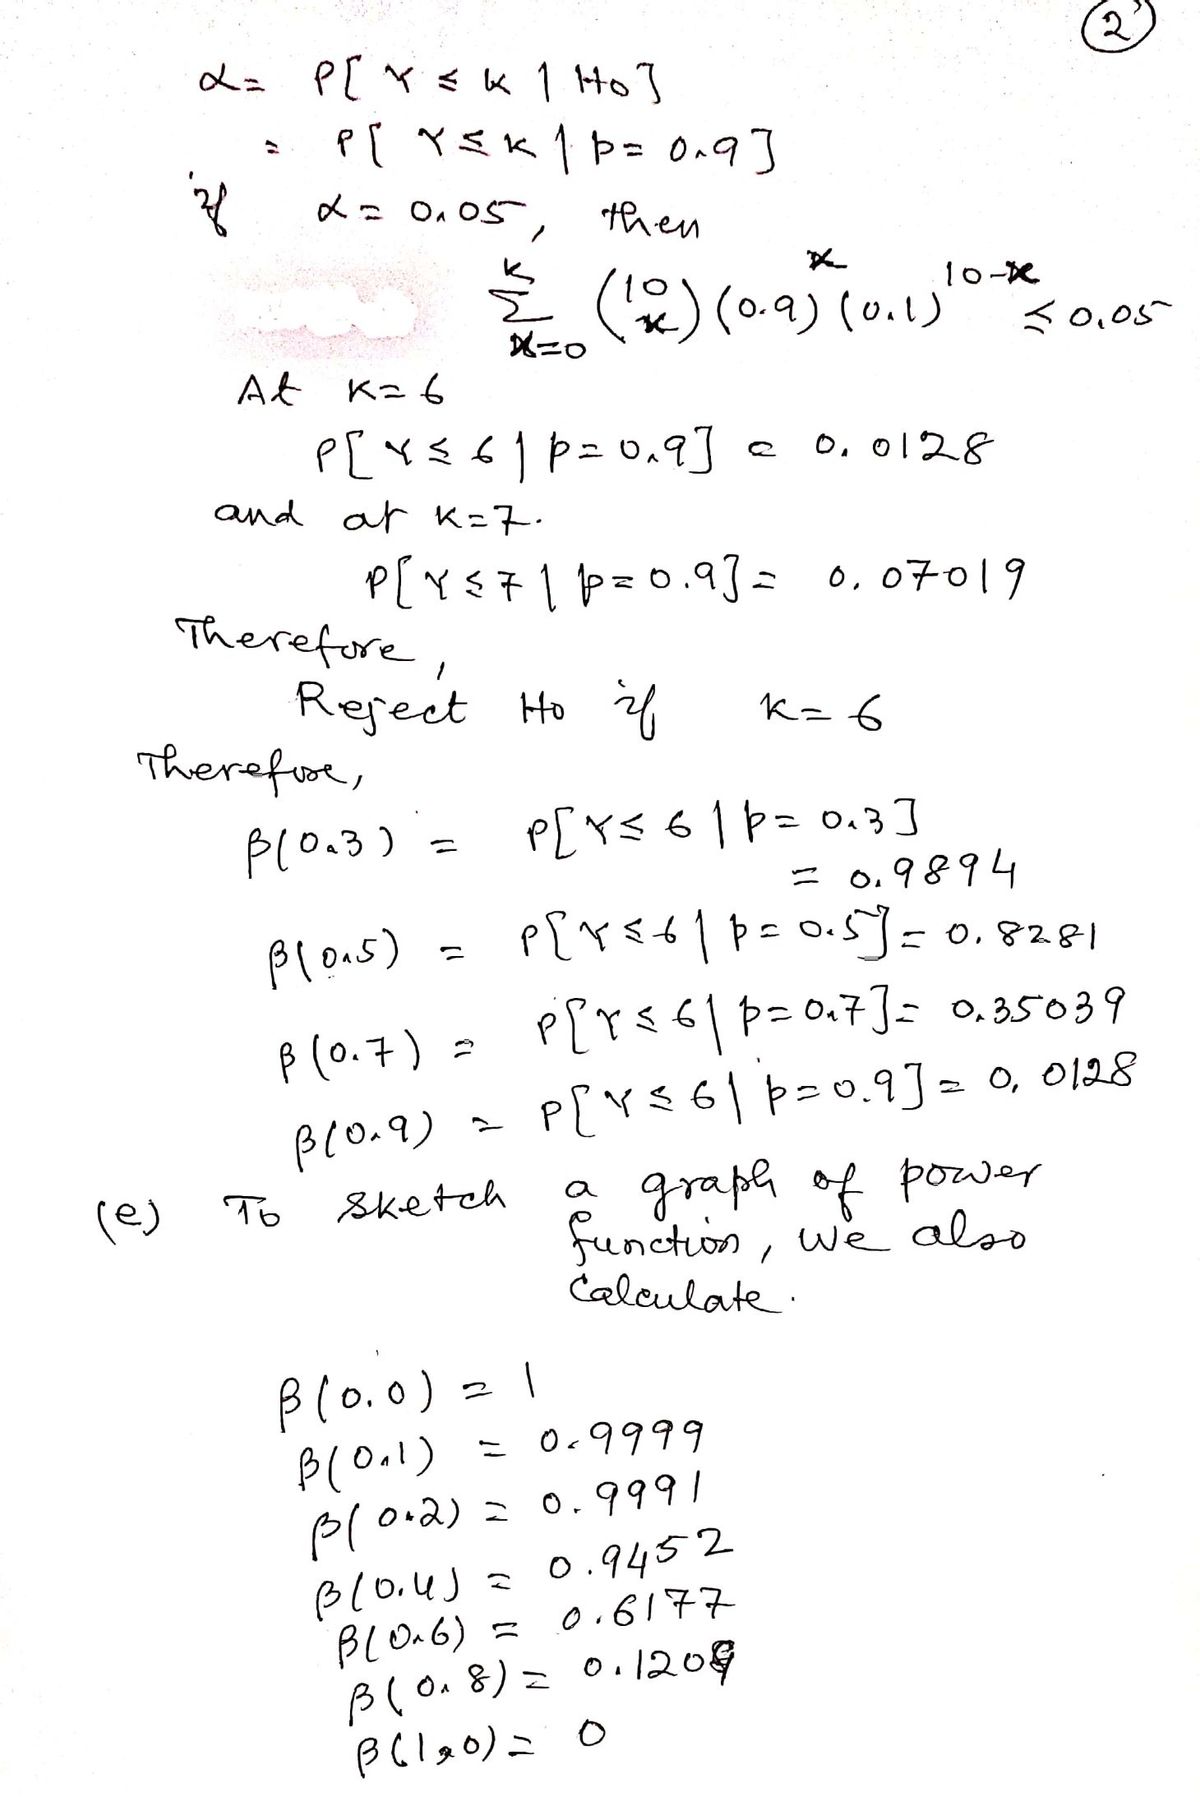 2
α = P[Y ≤ K | Ho]
= P[Y ≤ K | p = 0.9]
if α = 0.05, then
K
Σ (10 x) (0.9)^x (0.1)^10-x ≤ 0.05
x=0
At K=6
P[Y ≤ 6 | p = 0.9] = 0.0128
and at K=7.
P[Y ≤ 7 | p = 0.9] = 0.07019
Therefore,
Reject Ho if K = 6
Therefore,
β(0.3) = P[Y ≤ 6 | p = 0.3]
= 0.9894
β(0.5) = P[Y ≤ 6 | p = 0.5] = 0.8281
β(0.7) = P[Y ≤ 6 | p = 0.7] = 0.35039
β(0.9) = P[Y ≤ 6 | p = 0.9] = 0.0128
(e) To sketch a graph of power
function, we also
Calculate.
β(0.0) = 1
β(0.1) = 0.9999
β(0.2) = 0.9991
β(0.4) = 0.9452
β(0.6) = 0.6177
β(0.8) = 0.1209
β(1.0) = 0